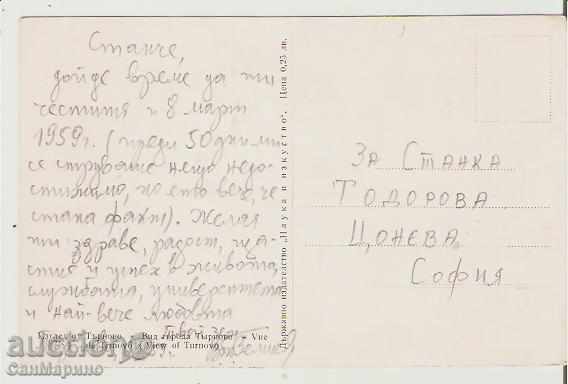 Станче,
дойде време да ти
честитя и 8 март
1959 г. (преди 50 дни ми
се струваше нещо недо-
стижимо, но ето вече, че
стана факт). Желая
ти здраве, радост, ща-
стие и успех в живота,
службата, университета
и най-вече любовта
Изглед от Търново — Вид города Тырново — Vue
de Tirnovo — View of Turnovo
Държавно издателство „Наука и изкуство". Цена 0,25 лв.
За Станка
Тодорова
Цонева
София
auction
СанМарино